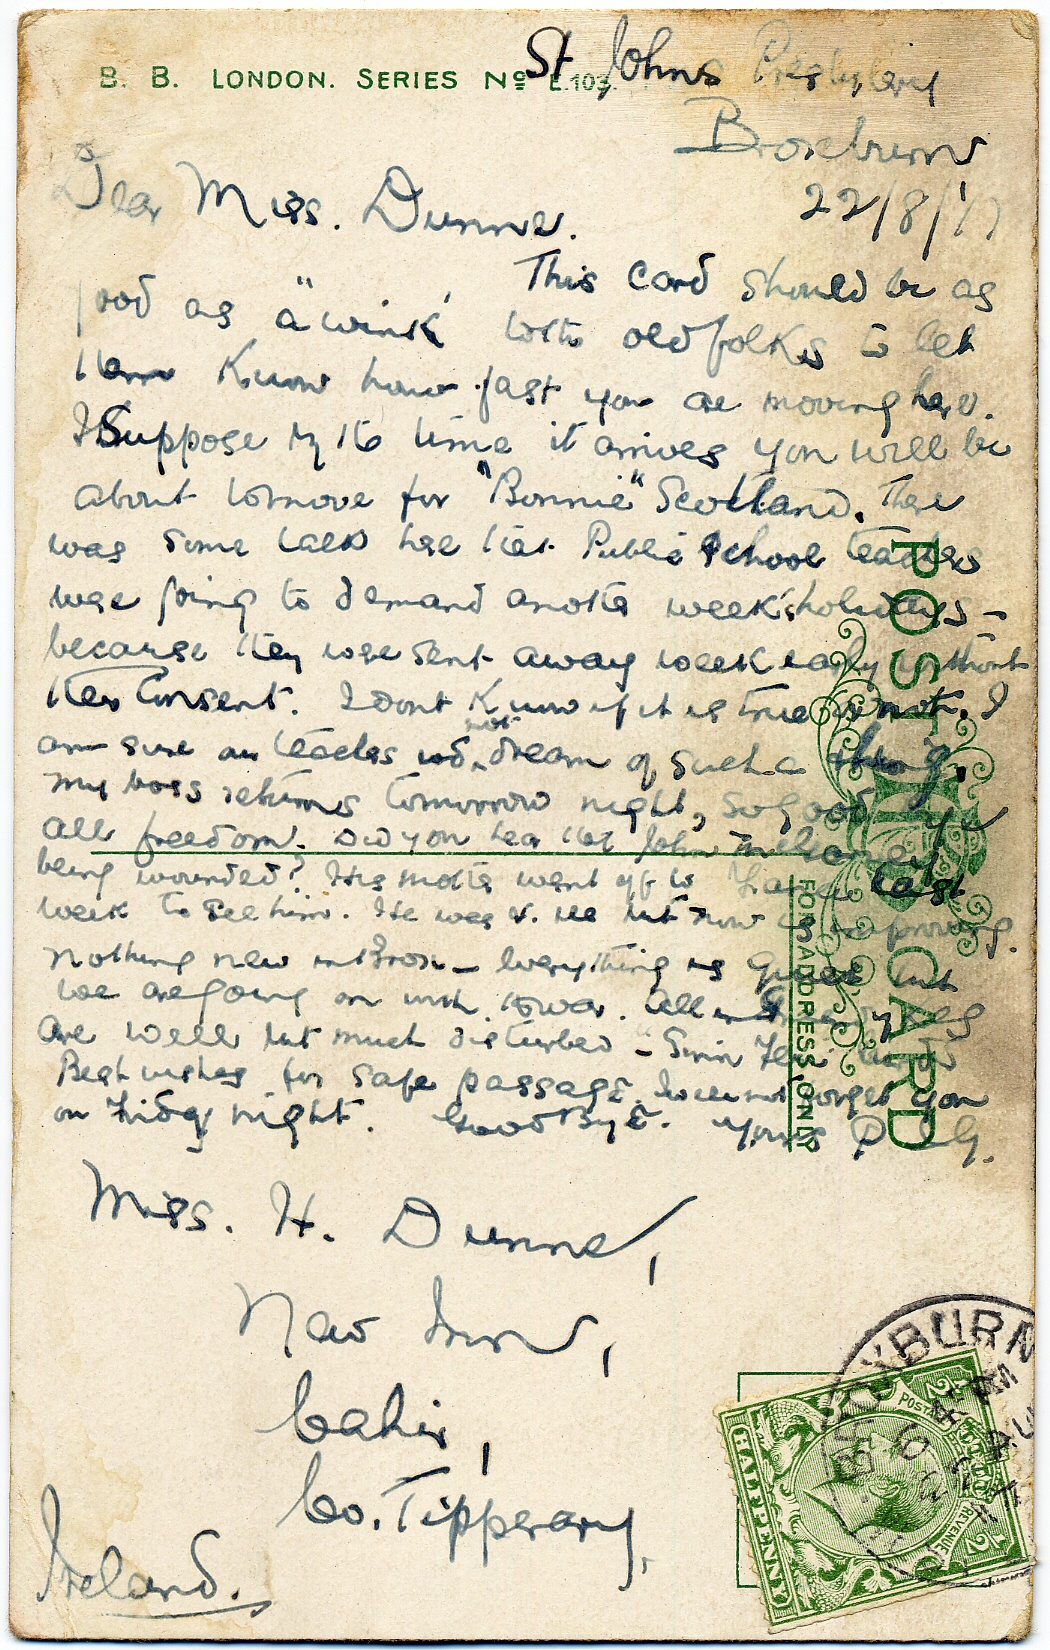 B. B. LONDON. SERIES Nº E.103.
St Johns Presbytery
Broxburn
22/8/17
Dear Miss. Dunne.
This card should be as
good as a "wink" to th old folks to let
them know how fast you are moving here.
I Suppose by th time it arrives you will be
about to move for "Bonnie" Scotland. There
was some talk here that Public School teachers
were going to demand another week's holidays -
because they were sent away week early without
their Consent. I dont Know if it is true or not. I
am sure our teachers wd. not dream of such a thing.
My boss returns tomorrow night, so good bye
all freedom. Did you hear that John
being wounded? His mother went off to France last
week to see him. He was v. ill but now is improving.
Nothing new in Brox - Everything is quiet but
we are going on with th war. All in
are well but much disturbed - "Sinn Fein"
Best wishes for safe passage. I will not forget you
on Friday night. GoodBye. Yours
Miss. H. Dunne,
New Inn,
Cahir,
Co. Tipperary,
Ireland.
POST CARD
FOR ADDRESS ONLY
BROXBURN
POSTAGE
REVENUE
HALFPENNY